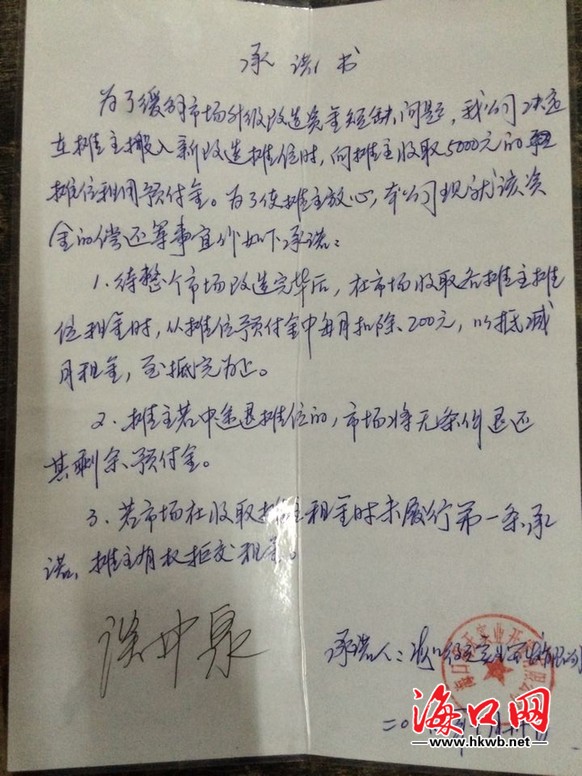 承诺书
为了缓解市场升级改造资金短缺问题，我公司决定
在摊主搬入新改造摊位时，向摊主收取5000元的
摊位租用预付金。为了使摊主放心，本公司现就该资
金的偿还等事宜作如下承诺：
1、待整个市场改造完毕后，在市场收取各摊主摊
位租金时，从摊位预付金中每月扣除200元，以抵减
月租金，至抵完为止。
2、摊主若中途退摊位的，市场将无条件退还
其剩余预付金。
3、若市场在收取摊主租金时未履行第一条承
诺，摊主有权拒交租金。
承诺人：海口
二〇
海口网
www.hkwb.net